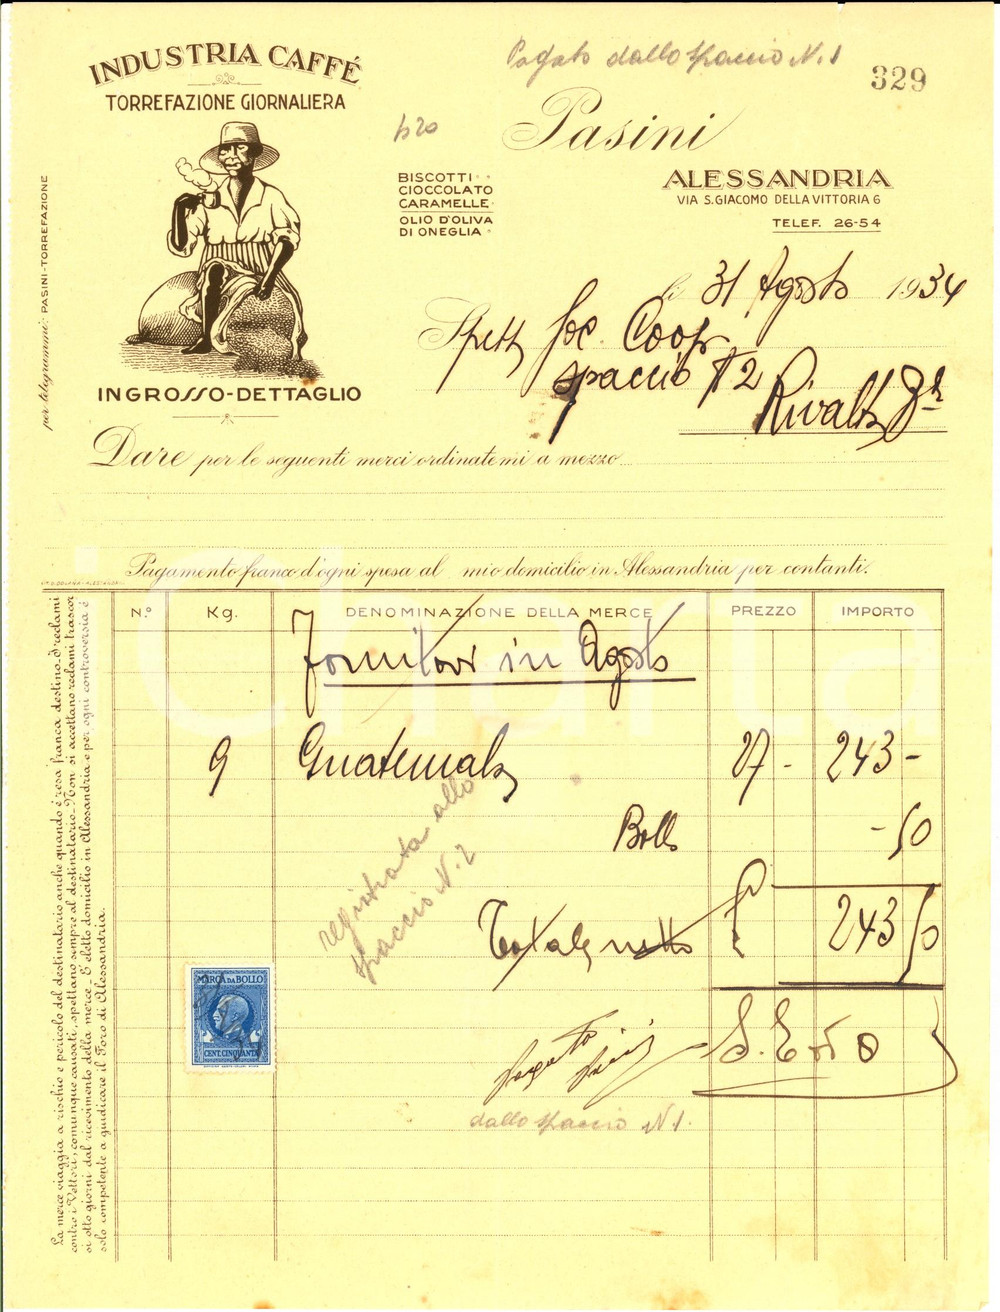 INDUSTRIA CAFFÉ
TORREFAZIONE GIORNALIERA
INGROSSO-DETTAGLIO
per telegrammi: PASINI-TORREFAZIONE
Pagato dallo spaccio N. 1
329
520
Pasini
BISCOTTI
CIOCCOLATO
CARAMELLE
OLIO D'OLIVA
DI ONEGLIA
ALESSANDRIA
VIA S. GIACOMO DELLA VITTORIA 6
TELEF. 26-54
li 31 Agosto 1934
Spett. Soc. Coop.
spaccio N 2
Rivalta
Dare per le seguenti merci ordinatemi a mezzo
Pagamento franco d'ogni spesa al mio domicilio in Alessandria per contanti.
N.° Kg. DENOMINAZIONE DELLA MERCE PREZZO IMPORTO
Fornitovi in Agosto
9 Guatemala 27 - 243 -
Bollo - 50
Totale netto £ 243 50
registrata allo
spaccio N. 2
MARCA DA BOLLO
CENT. CINQUANTA
S. E. ed O
dallo spaccio N 1.
La merce viaggia a rischio e pericolo del destinatario anche quando è resa franca destino - I reclami
contro i Vettori, comunque causati, spettano sempre al destinatario - Non si accettano reclami trascor
si otto giorni dal ricevimento della merce - È eletto domicilio in Alessandria e per ogni controversia è
solo competente a giudicare il Foro di Alessandria.
iCharta